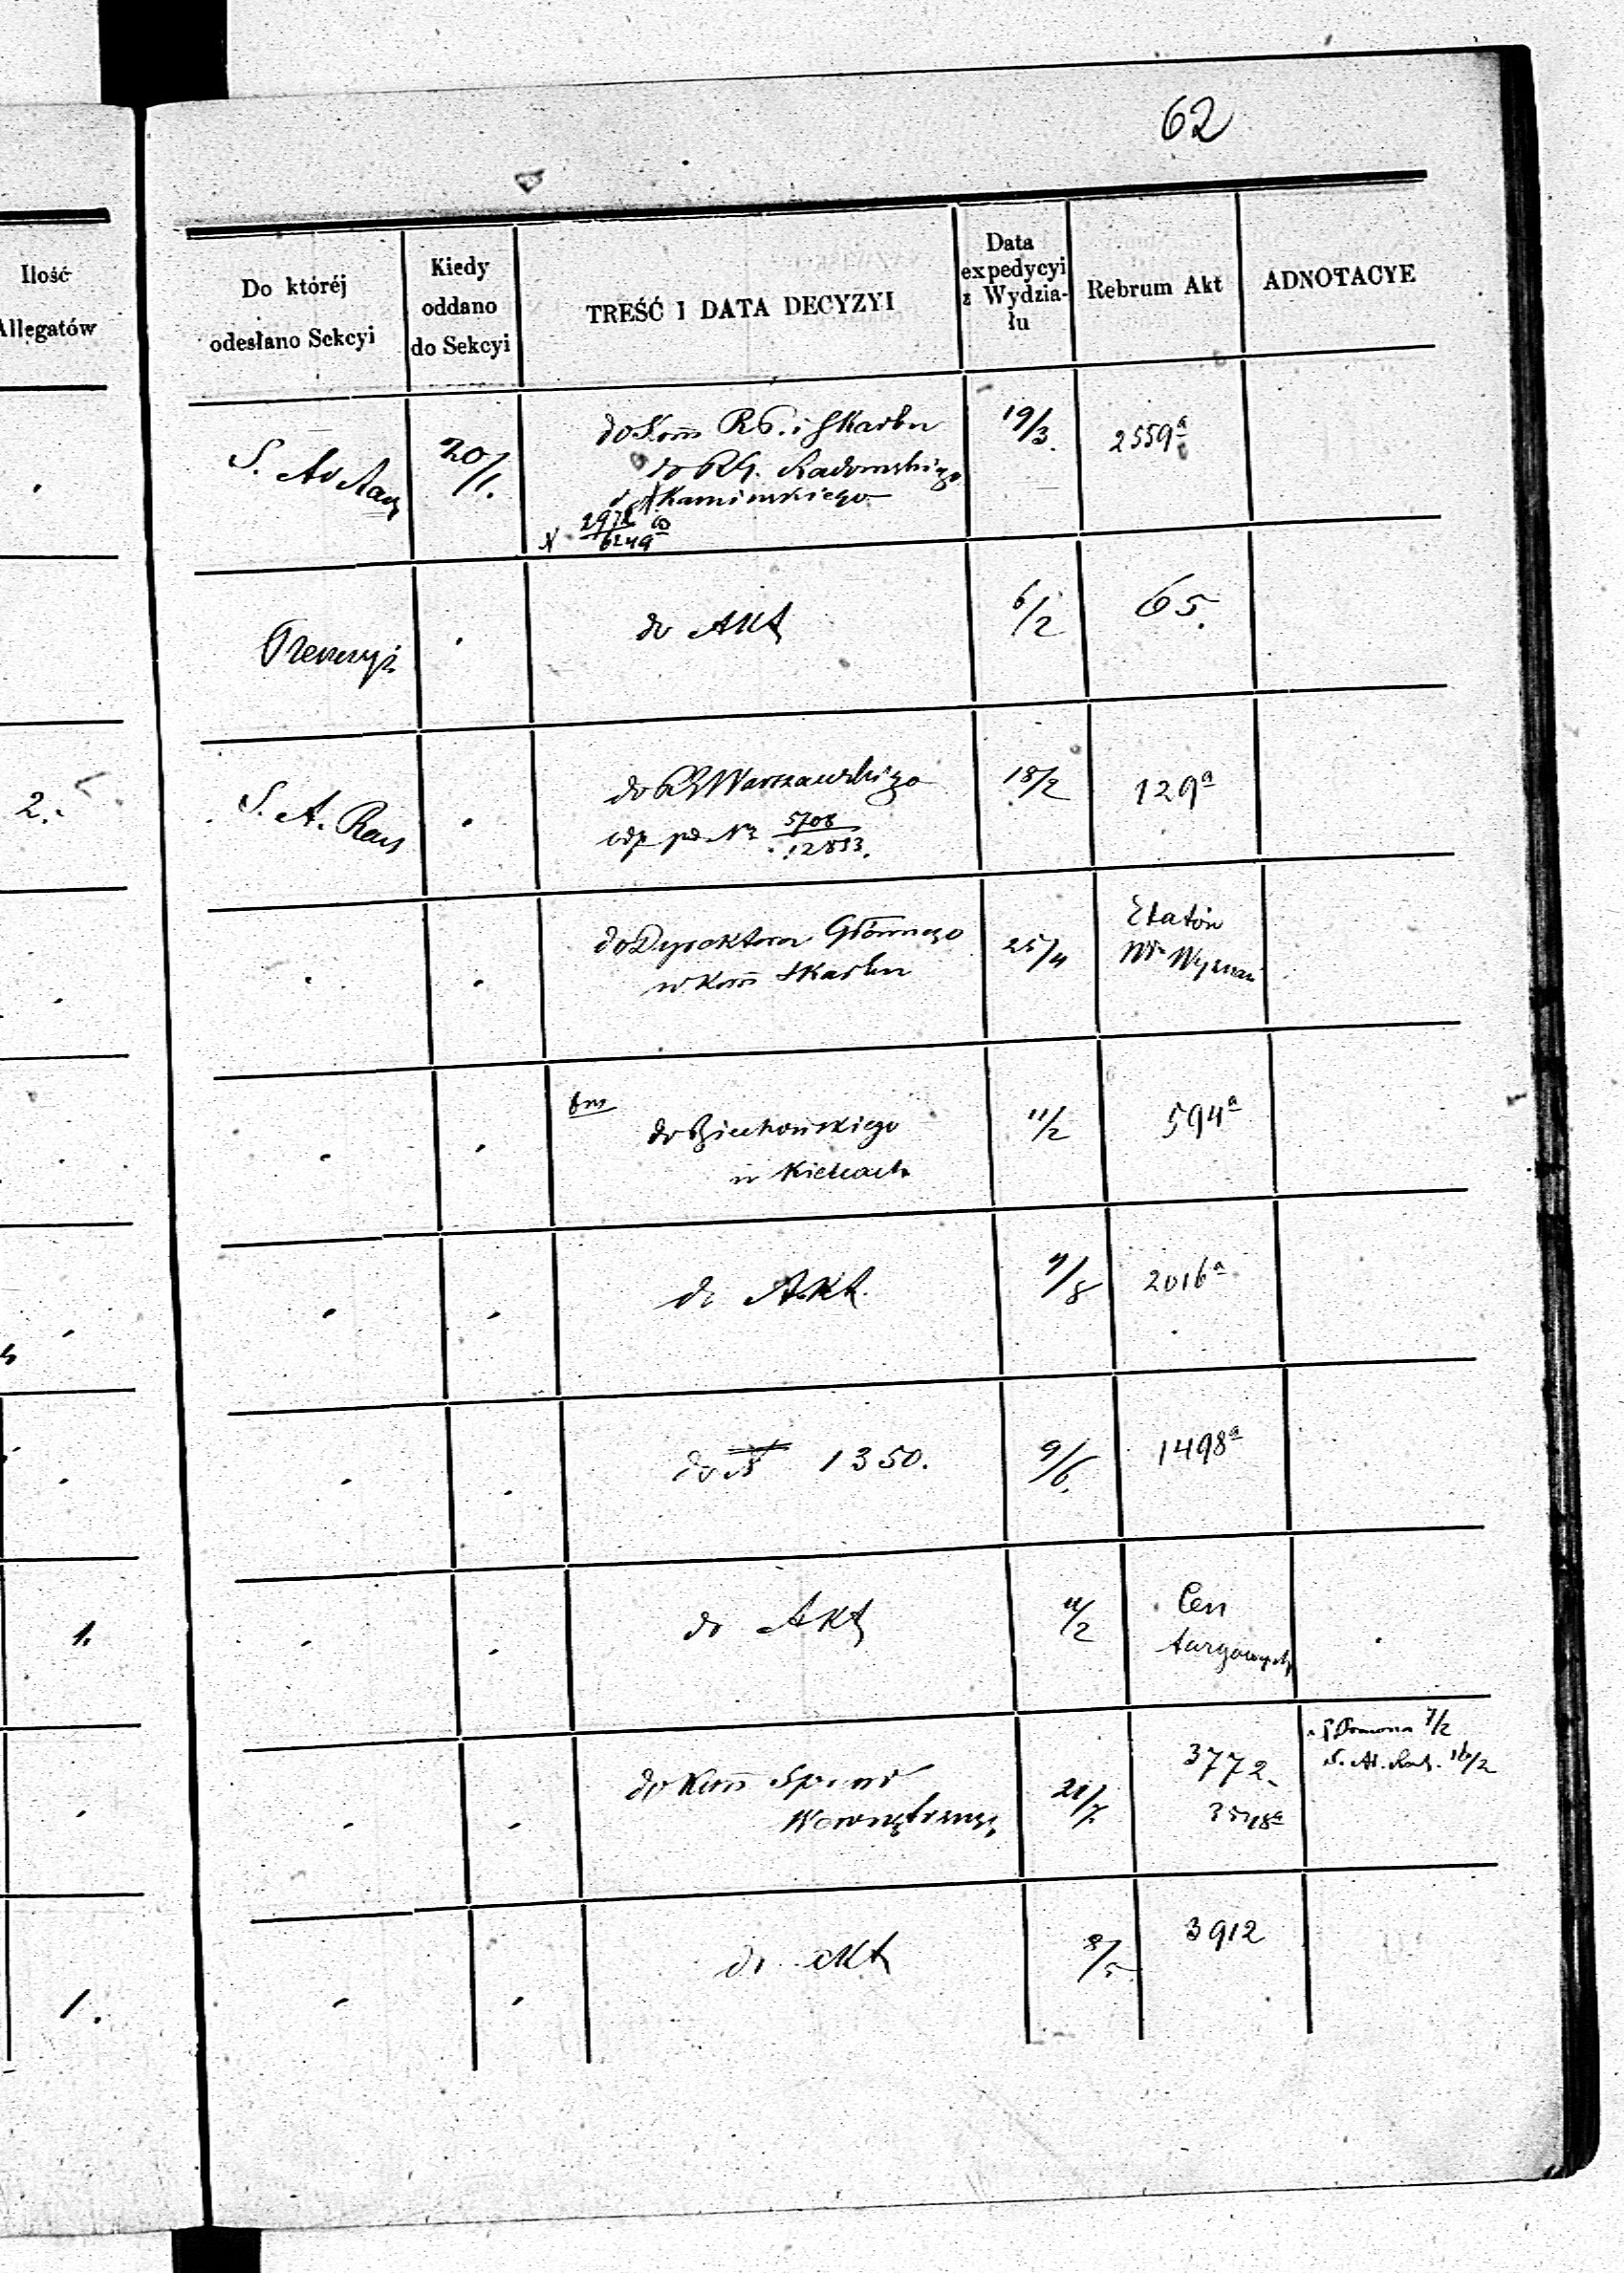 62
Ilość
Allegatów
Do któréj
odesłano Sekcyi
Kiedy
oddano
do Sekcyi
TREŚĆ I DATA DECYZYI
Data
expedycyi
z Wydzia-
łu
Rebrum Akt
ADNOTACYE
S. Ad
20/1.
do Kom R. P. i Skarbu
do RG. Radomskiego
Kamińskiego
6249
19/3.
2559a
do Akt
6/2
65.
2.
S. A. Rach
do RG Warszawskiego
odp. pod Nr 5708/12833.
18/2
129a
do Dyrektora Głównego
w Kom Skarbu
25/4
Etatów
do
w Kielcach
11/2
594a
do Akt.
9/8
2016a
do N 1350.
9/6.
1498a
1.
do Akt
11/2
Cen
targowych
do Kom Spraw
Wewnętrznej
21/7.
3772.
7/2
16/2
1.
do Akt
8/5
3912